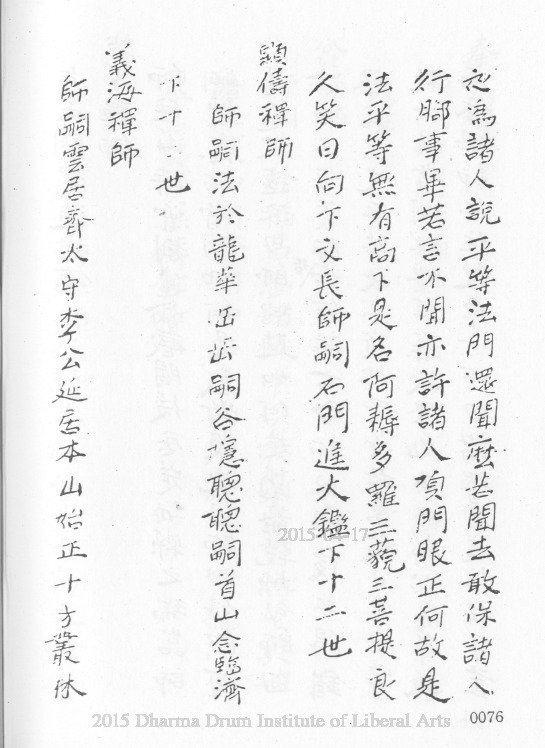 忽為諸人說平等法門還聞麼若聞去敢保諸人
行腳事畢若言不聞亦許諸人頂門眼正何故是
法平等無有高下是名阿耨多羅三藐三菩提良
久笑曰向下文長師嗣石門進大鑑下十二世
顯儔禪師
師嗣法於龍華岳岳嗣谷隱聰聰嗣首山念臨濟
下十世
義海禪師
師嗣雲居齊太守李公延居本山始正十方叢林
2015-04-17
2015 Dharma Drum Institute of Liberal Arts
0076